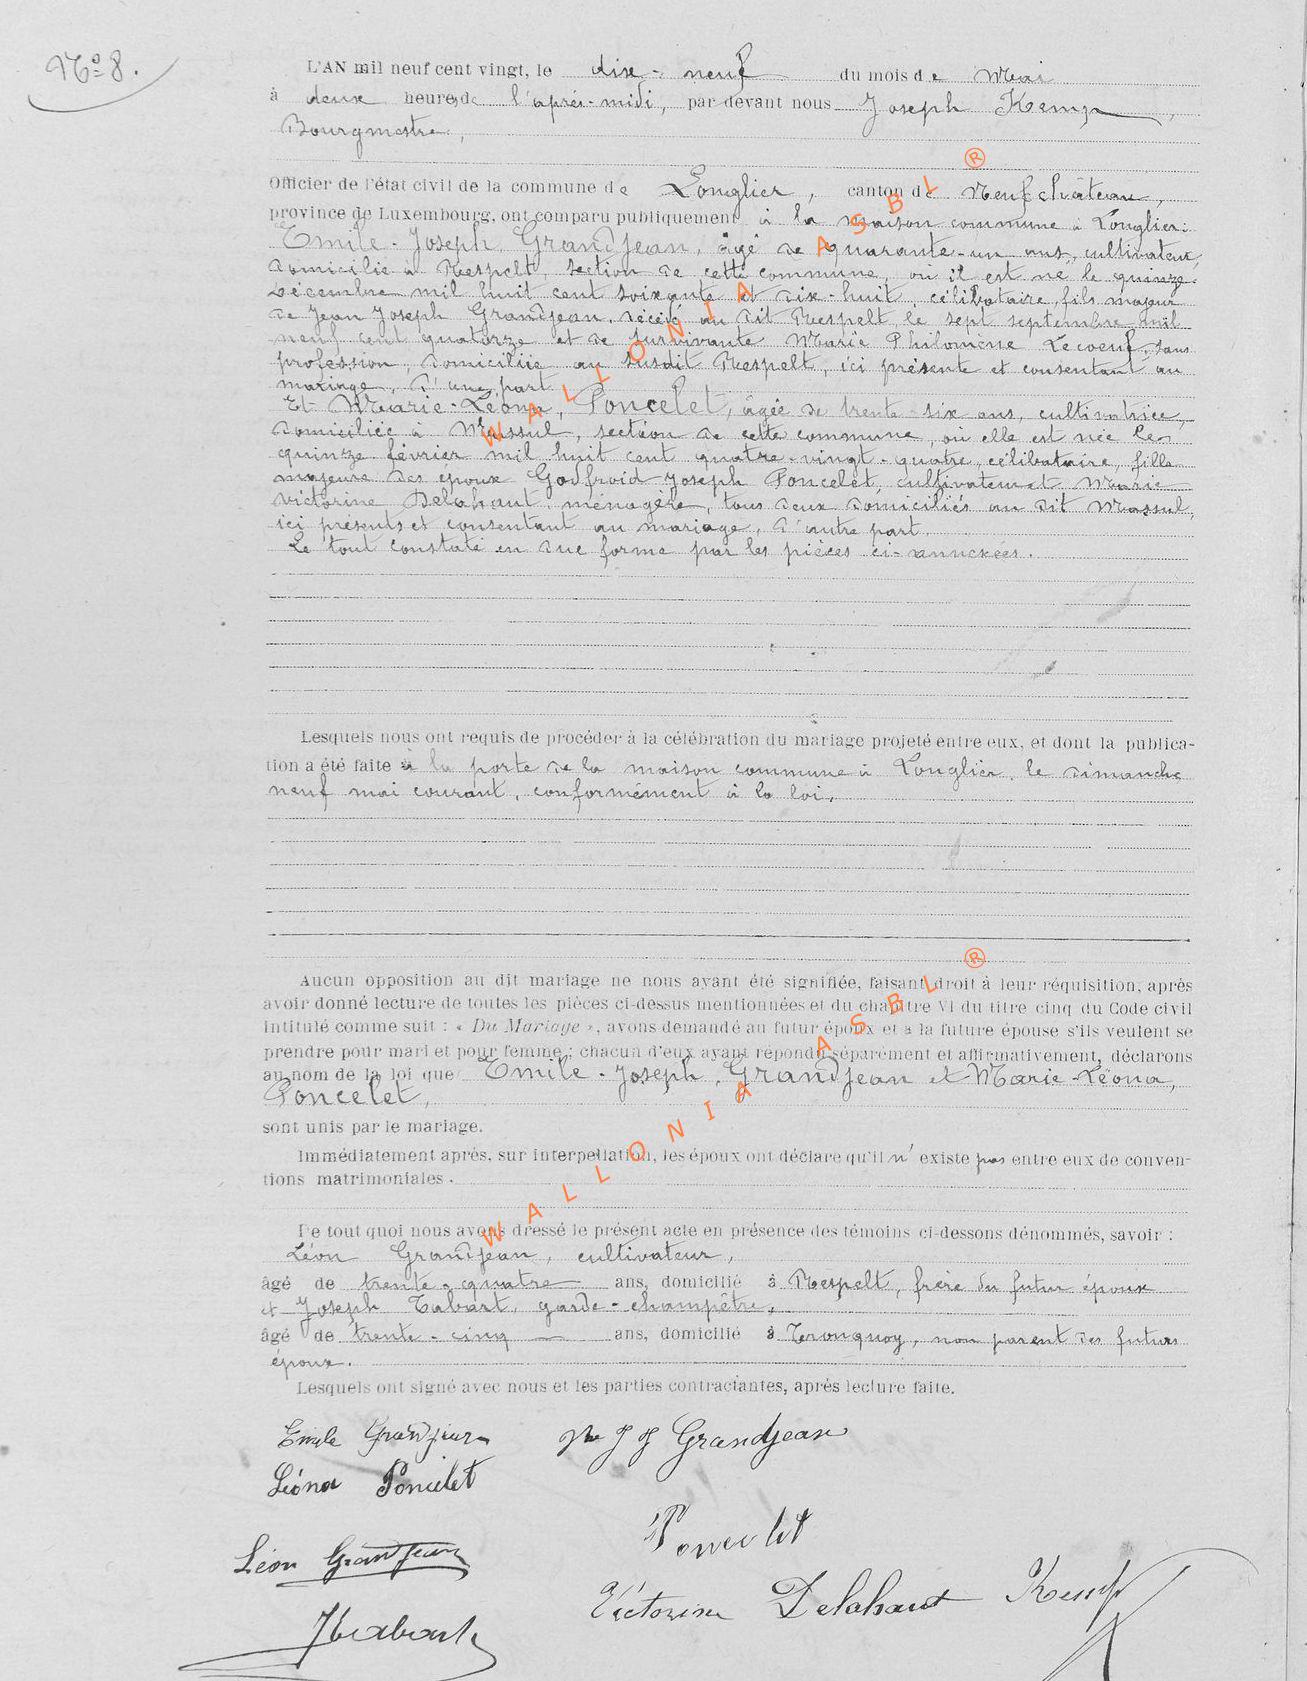 No 8.
L'AN mil neuf cent vingt, le dix-neuf du mois de Mai
à deux heures de l'après-midi, par devant nous Joseph Kemp,
Bourgmestre,
Officier de l'état civil de la commune de Longlier, canton de Neufchâteau,
province de Luxembourg, ont comparu publiquement à la maison commune à Longlier:
Emile-Joseph Grandjean, âgé de quarante-un ans, cultivateur,
domicilié à Respelt, section de cette commune, où il est né le quinze
Décembre mil huit cent soixante et dix-huit, célibataire, fils majeur
de Jean Joseph Grandjean, décédé au dit Respelt, le sept septembre mil
neuf cent quatorze et de survivante Marie Philomène Lecoeuf, sans
profession, domiciliée au susdit Respelt, ici présente et consentant au
mariage, d'une part
Et Marie-Léona, Poncelet, âgée de trente-six ans, cultivatrice,
domiciliée à Massul, section de cette commune, où elle est née le
quinze février mil huit cent quatre-vingt-quatre, célibataire, fille
majeure des époux Godfroid Joseph Poncelet, cultivateur et Marie
Victorine Delahaut, ménagère, tous deux domiciliés au dit Massul,
ici présents et consentant au mariage, d'autre part.
Le tout constaté en due forme par les pièces ci-annexées.
Lesquels nous ont requis de procéder à la célébration du mariage projeté entre eux, et dont la publica-
tion a été faite à la porte de la maison commune à Longlier, le dimanche
neuf mai courant, conformément à la loi.
Aucun opposition au dit mariage ne nous ayant été signifiée, faisant droit à leur réquisition, après
avoir donné lecture de toutes les pièces ci-dessus mentionnées et du chapitre VI du titre cinq du Code civil
intitulé comme suit : « Du Mariage », avons demandé au futur époux et à la future épouse s'ils veulent se
prendre pour mari et pour femme ; chacun d'eux ayant répondu séparément et affirmativement, déclarons
au nom de la loi que Emile-Joseph, Grandjean et Marie-Léona,
Poncelet,
sont unis par le mariage.
Immédiatement après, sur interpellation, les époux ont déclaré qu'il n'existe pas entre eux de conven-
tions matrimoniales.
De tout quoi nous avons dressé le présent acte en présence des témoins ci-dessons dénommés, savoir :
Léon Grandjean, cultivateur,
âgé de trente-quatre ans, domicilié à Respelt, frère du futur époux
et Joseph Tabart, garde-champêtre,
âgé de trente-cinq ans, domicilié à Tronquoy, non parent des futurs
époux.
Lesquels ont signé avec nous et les parties contractantes, après lecture faite.
Emile Grandjean Vve J J Grandjean
Léona Poncelet
Poncelet
Léon Grandjean
Victorine Delahaut Kemp
WALLONIA ASBL ®
WALLONIA ASBL ®